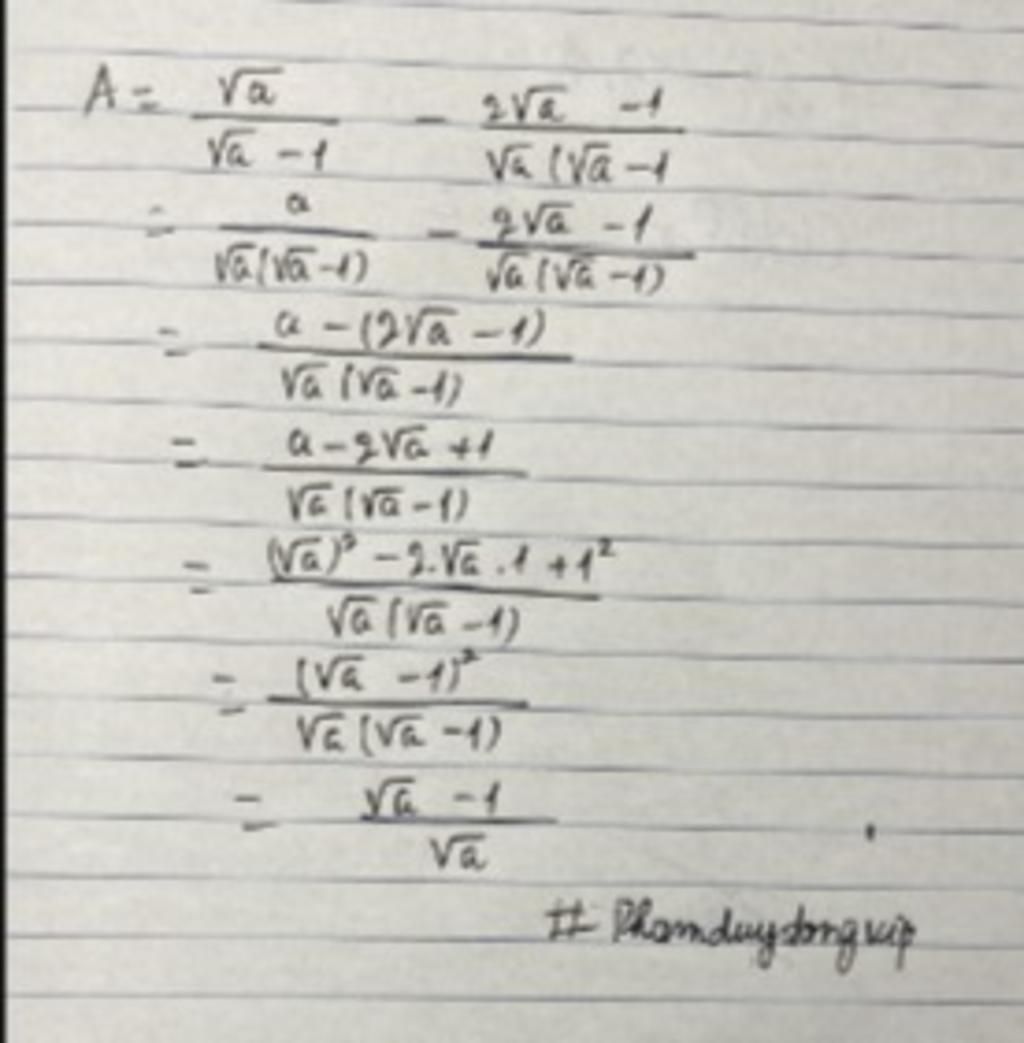 A = √a / (√a - 1) - (2√a - 1) / √a (√a - 1
= a / √a(√a - 1) - (2√a - 1) / √a (√a - 1)
= a - (2√a - 1) / √a (√a - 1)
= a - 2√a + 1 / √a (√a - 1)
= (√a)² - 2.√a . 1 + 1² / √a (√a - 1)
= (√a - 1)² / √a (√a - 1)
= √a - 1 / √a
# Phamduydongvip